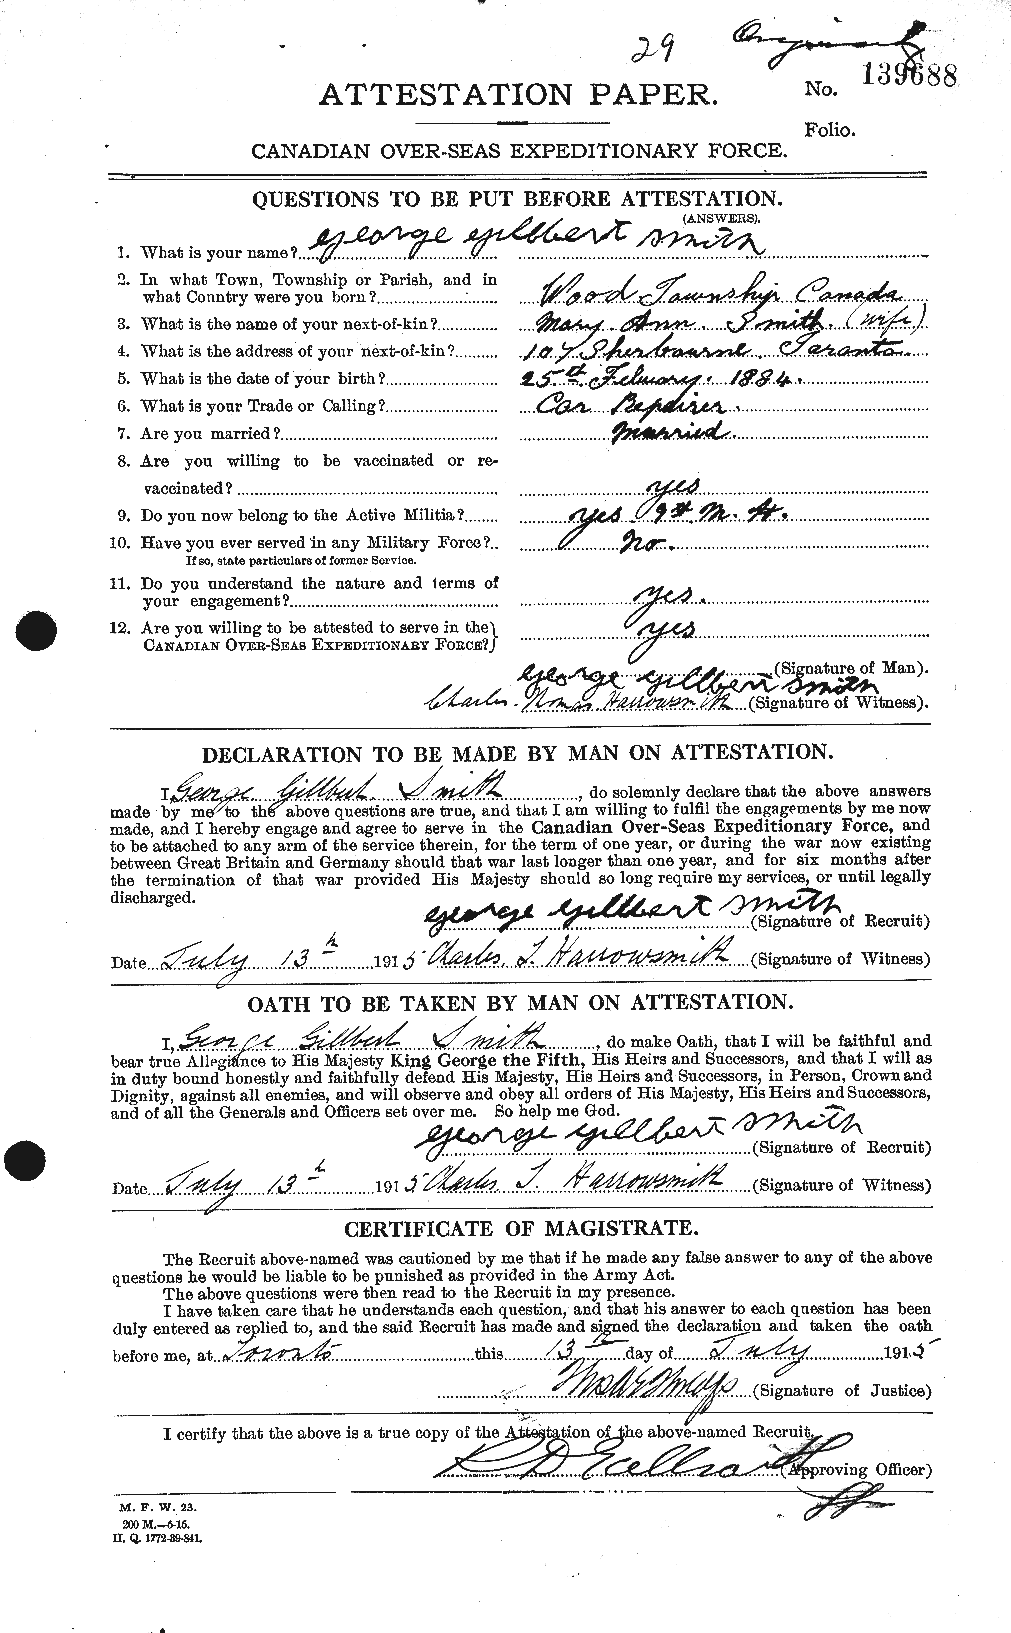 29 Originally
No. 139688
ATTESTATION PAPER.
Folio.
CANADIAN OVER-SEAS EXPEDITIONARY FORCE.
QUESTIONS TO BE PUT BEFORE ATTESTATION.
(ANSWERS).
1. What is your name? George Gillbert Smith
2. In what Town, Township or Parish, and in
what Country were you born? Wood Township Canada
3. What is the name of your next-of-kin? Mary Ann Smith. (wife)
4. What is the address of your next-of-kin? 107 Sherbourne Toronto
5. What is the date of your birth? 25th February. 1884.
6. What is your Trade or Calling? Car Repairer.
7. Are you married? Married.
8. Are you willing to be vaccinated or re-
vaccinated? yes
9. Do you now belong to the Active Militia? yes 9th M. H.
10. Have you ever served in any Military Force? No.
If so, state particulars of former Service.
11. Do you understand the nature and terms of
your engagement? yes.
12. Are you willing to be attested to serve in the
CANADIAN OVER-SEAS EXPEDITIONARY FORCE? yes
George Gillbert Smith (Signature of Man).
Charles Thomas Harrowsmith (Signature of Witness).
DECLARATION TO BE MADE BY MAN ON ATTESTATION.
I, George Gillbert Smith, do solemnly declare that the above answers
made by me to the above questions are true, and that I am willing to fulfil the engagements by me now
made, and I hereby engage and agree to serve in the Canadian Over-Seas Expeditionary Force, and
to be attached to any arm of the service therein, for the term of one year, or during the war now existing
between Great Britain and Germany should that war last longer than one year, and for six months after
the termination of that war provided His Majesty should so long require my services, or until legally
discharged.
George Gillbert Smith (Signature of Recruit)
Date July 13th 1915 Charles T. Harrowsmith (Signature of Witness)
OATH TO BE TAKEN BY MAN ON ATTESTATION.
I, George Gillbert Smith, do make Oath, that I will be faithful and
bear true Allegiance to His Majesty King George the Fifth, His Heirs and Successors, and that I will as
in duty bound honestly and faithfully defend His Majesty, His Heirs and Successors, in Person, Crown and
Dignity, against all enemies, and will observe and obey all orders of His Majesty, His Heirs and Successors,
and of all the Generals and Officers set over me. So help me God.
George Gillbert Smith
(Signature of Recruit)
Date July 13th 1915 Charles T. Harrowsmith (Signature of Witness)
CERTIFICATE OF MAGISTRATE.
The Recruit above-named was cautioned by me that if he made any false answer to any of the above
questions he would be liable to be punished as provided in the Army Act.
The above questions were then read to the Recruit in my presence.
I have taken care that he understands each question, and that his answer to each question has been
duly entered as replied to, and the said Recruit has made and signed the declaration and taken the oath
before me, at Toronto this 13th day of July 1915
(Signature of Justice)
I certify that the above is a true copy of the Attestation of the above-named Recruit.
(Approving Officer)
M. F. W. 23.
200 M.—6-15.
H. Q. 1772-39-841.